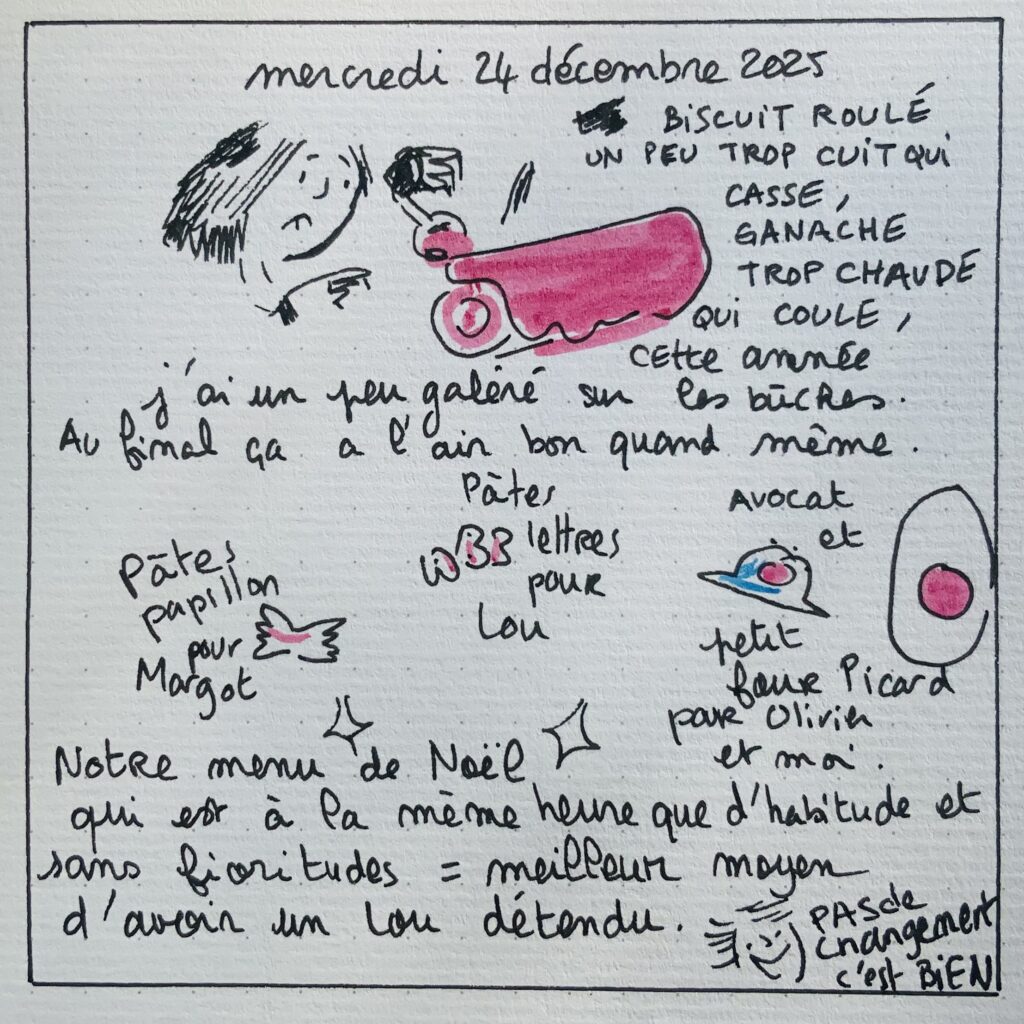 mercredi 24 décembre 2025
BISCUIT ROULÉ
UN PEU TROP CUIT QUI
CASSE,
GANACHE
TROP CHAUDE
QUI COULE,
CETTE année
j'ai un peu galéré sur les bûches.
Au final ça a l'air bon quand même.
Pâtes
lettres
pour
Lou
Pâtes
papillon
pour
Margot
AVOCAT
et
petit
four Picard
pour Olivier
et moi.
Notre menu de Noël
qui est à la même heure que d'habitude et
sans fioritudes = meilleur moyen
d'avoir un Lou détendu.
PAS de
changement
c'est BIEN